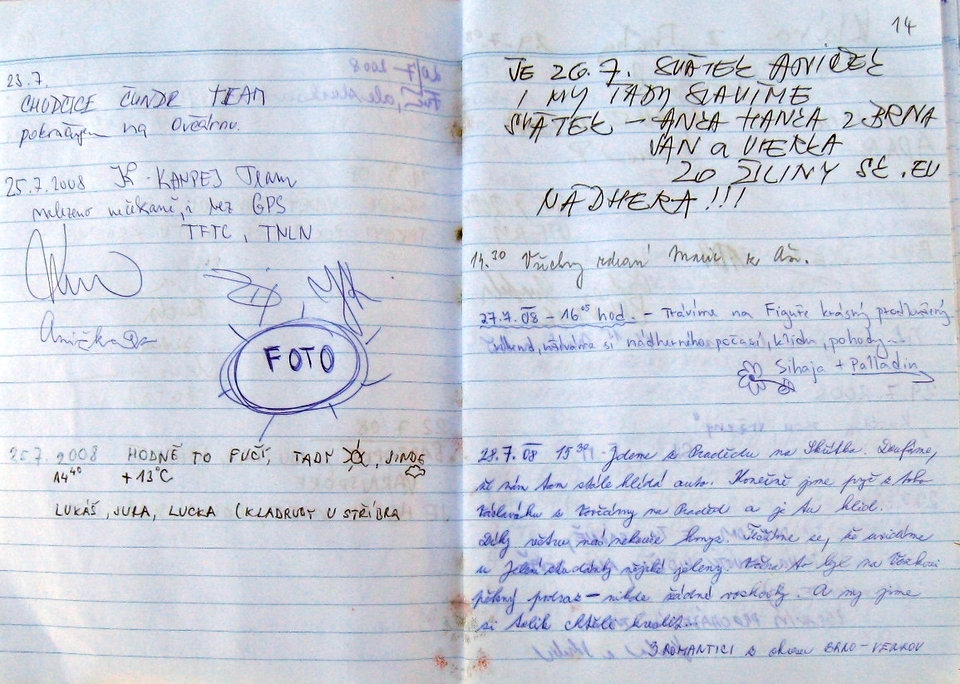 23.7.
CHODČICE ČUNDR TEAM
pokračujem na Ovčárnu.
25.7.2008 KANPEJ Team
nalezeno nečekaně, i bez GPS
TFTC, TNLN
Anička
FOTO
25.7.2008 HODNĚ TO FUČÍ, TADY , JINDE
14⁴⁰ +13°C
LUKÁŠ, JURA, LUCKA (KLADRUBY U STŘÍBRA
14
JE 26.7. SVÁTEK ANIČEK
I MY TADY SLAVÍME
SVÁTEK – ANČA HANČA Z BRNA
JAN a VIERKA
ZO ŽILINY SK.EU
NÁDHERA!!!
14.30 Všechny zdraví
27.7.08 – 16⁰⁵ hod. – Trávíme na Figuře krásný prodloužený
víkend, užíváme si nádherného počasí, klidu, pohody
Sihaja + Palladin
28.7.08 15³⁰ Jdeme z Pradědu na Skřítka. Doufáme,
že nám tam stále hlídá auto. Konečně jsme pryč z toho
Václaváku z Ovčárny na Praděd a je tu klid.
Díky větru nás nekouše hmyz. Těšíme se, že uvidíme
u Jelení studánky nějaké jeleny. Včera to byl na
pěkný podraz – nikde žádné borůvky. A my jsme
si tolik chtěli
3 ROMANTICI z okresu BRNO-VENKOV